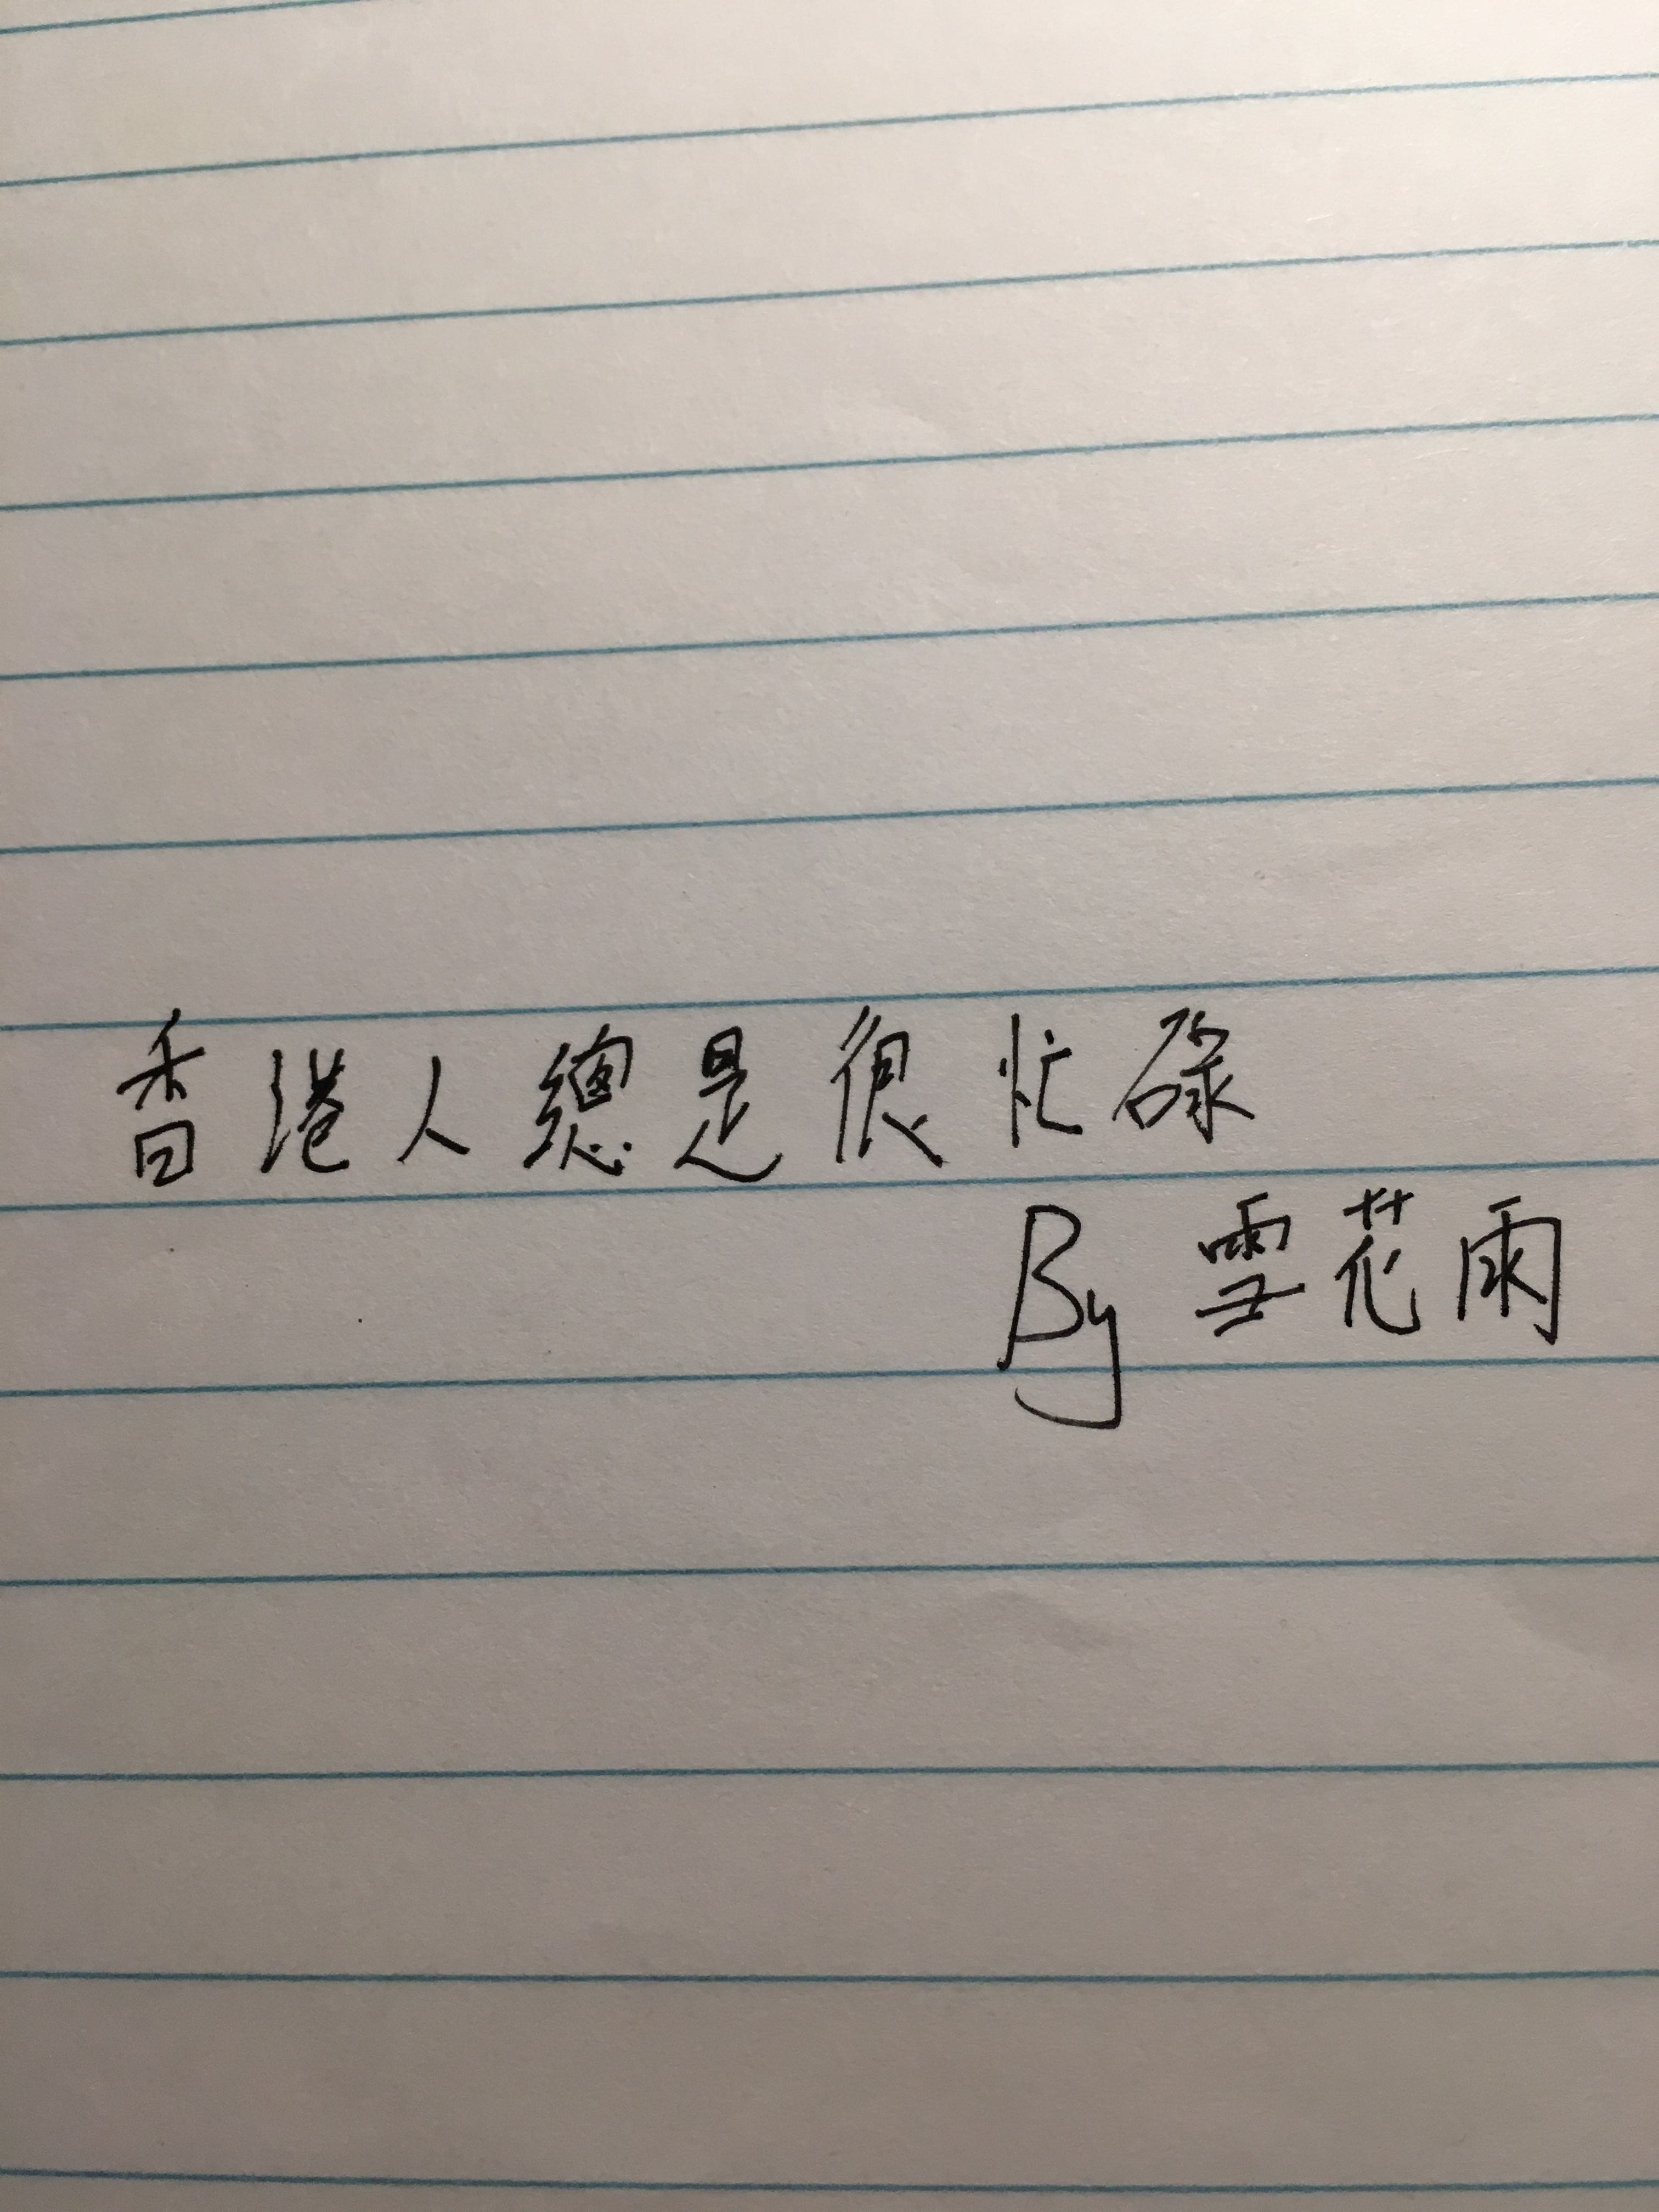 香港人總是很忙碌
By 雪花雨